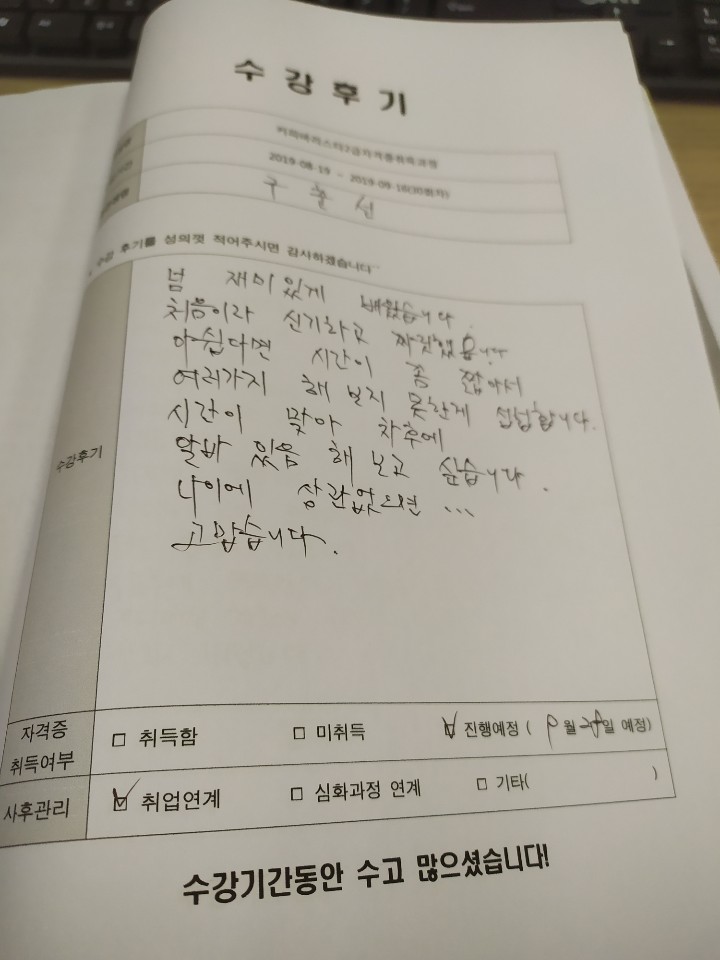 수 강 후 기
커피바리스타2급자격증취득과정
2019-08-19 ~ 2019-09-16(30회차)
구 춘 선
수강 후기를 성의껏 적어주시면 감사하겠습니다
수강후기
넘 재미있게 배웠습니다.
처음이라 신기하고 짜릿했읍니다
아쉽다면 시간이 좀 짧아서
여러가지 해 보지 못한게 섭섭합니다.
시간이 맞아 차후에
알바 있음 해 보고 싶습니다.
나이에 상관없으면 ...
고맙습니다.
자격증 취득여부 □ 취득함 □ 미취득 ☑ 진행예정 ( 9월 28일 예정)
사후관리 ☑ 취업연계 □ 심화과정 연계 □ 기타( )
수강기간동안 수고 많으셨습니다!